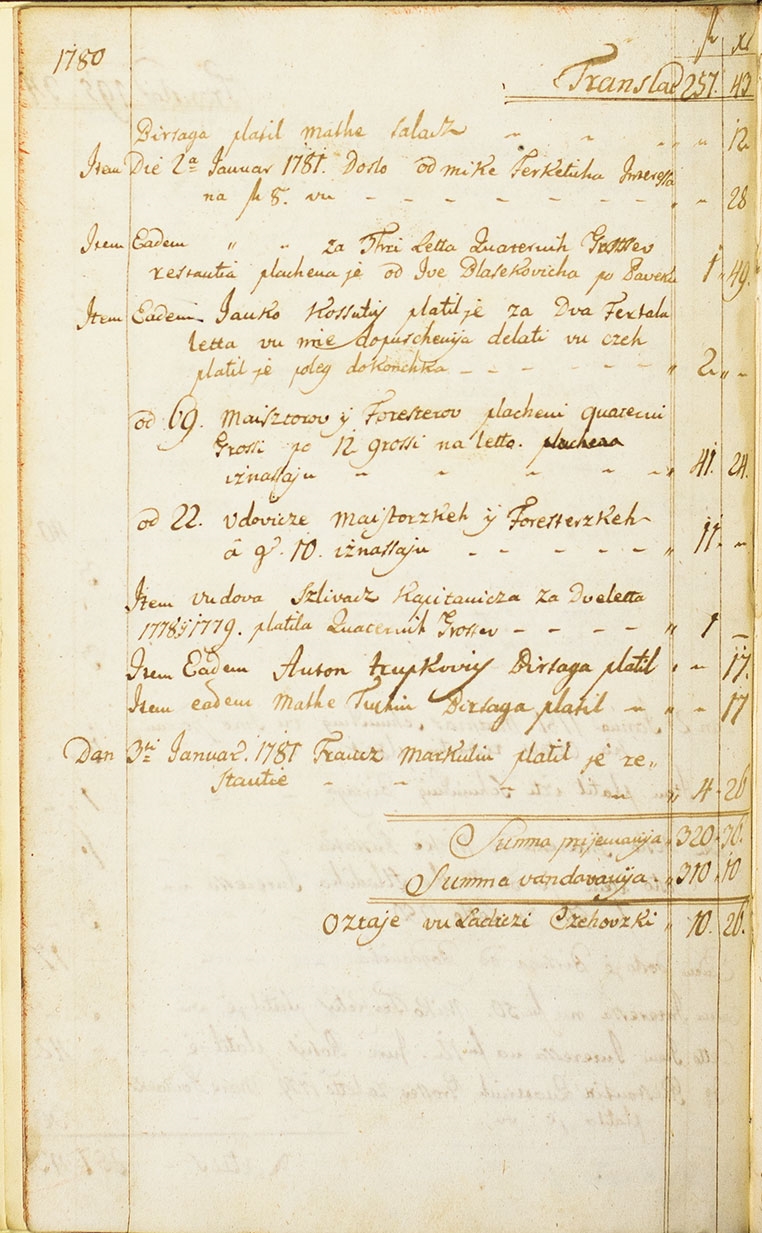 1780
fl xr
Translat 257. 43
Birsaga platil mathe Salacz - - - " " 12
Item Die 2a Januar 1781. Doslo od mike Ferketicha Interessa
na fl 8. vu - - - - - - - " - 28
Item Eadem " " za Thri Letta Quaternih Grossev
restantia plachena je od Ive Blasekovicha po Paveku 1 " 49.
Item Eadem Janko Kossutiy platil je za Dva Fertala
letta vu mie dopuschenya delati vu czeh
platil je poleg dokonchka - - - - - " 2 " -
od 69. Maisztorov y Foresterov placheni quaterni
Grossi po 12 grossi na letto. plachena
iznassaju - - - - - " 41. 24.
od 22. vdovicze Maistorzkeh y Foresterzkeh
â gr. 10. iznassaju - - - - - " 11. -
Item vudova Szlivacz Kapitanicza za Dve letta
1778 y 1779. platila Quaternih Grossev - - - - " 1 -
Item Eadem Anton Krupkoviy Birsaga platil " - 17.
Item eadem Mathe Tuchin Birsaga platil - " " 17
Dan 3ti Januar. 1781 Francz Markulin platil je re"
stantie - - - " 4 - 26
Summa prijemanya " 320 - 36.
Summa vandavanya - " 310 " 10
Oztaje vu Ladiczi Czehovzki " 10. 26.